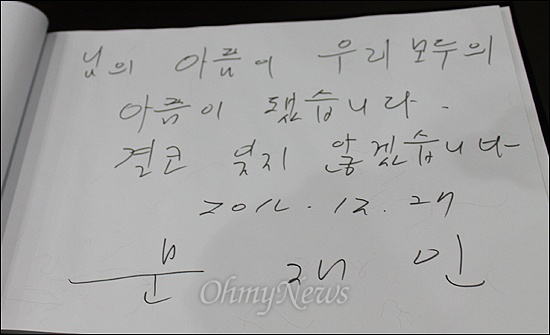 님의 아픔이 우리 모두의
아픔이 됐습니다.
결코 잊지 않겠습니다
2012. 12. 27
문 재 인
OhmyNews